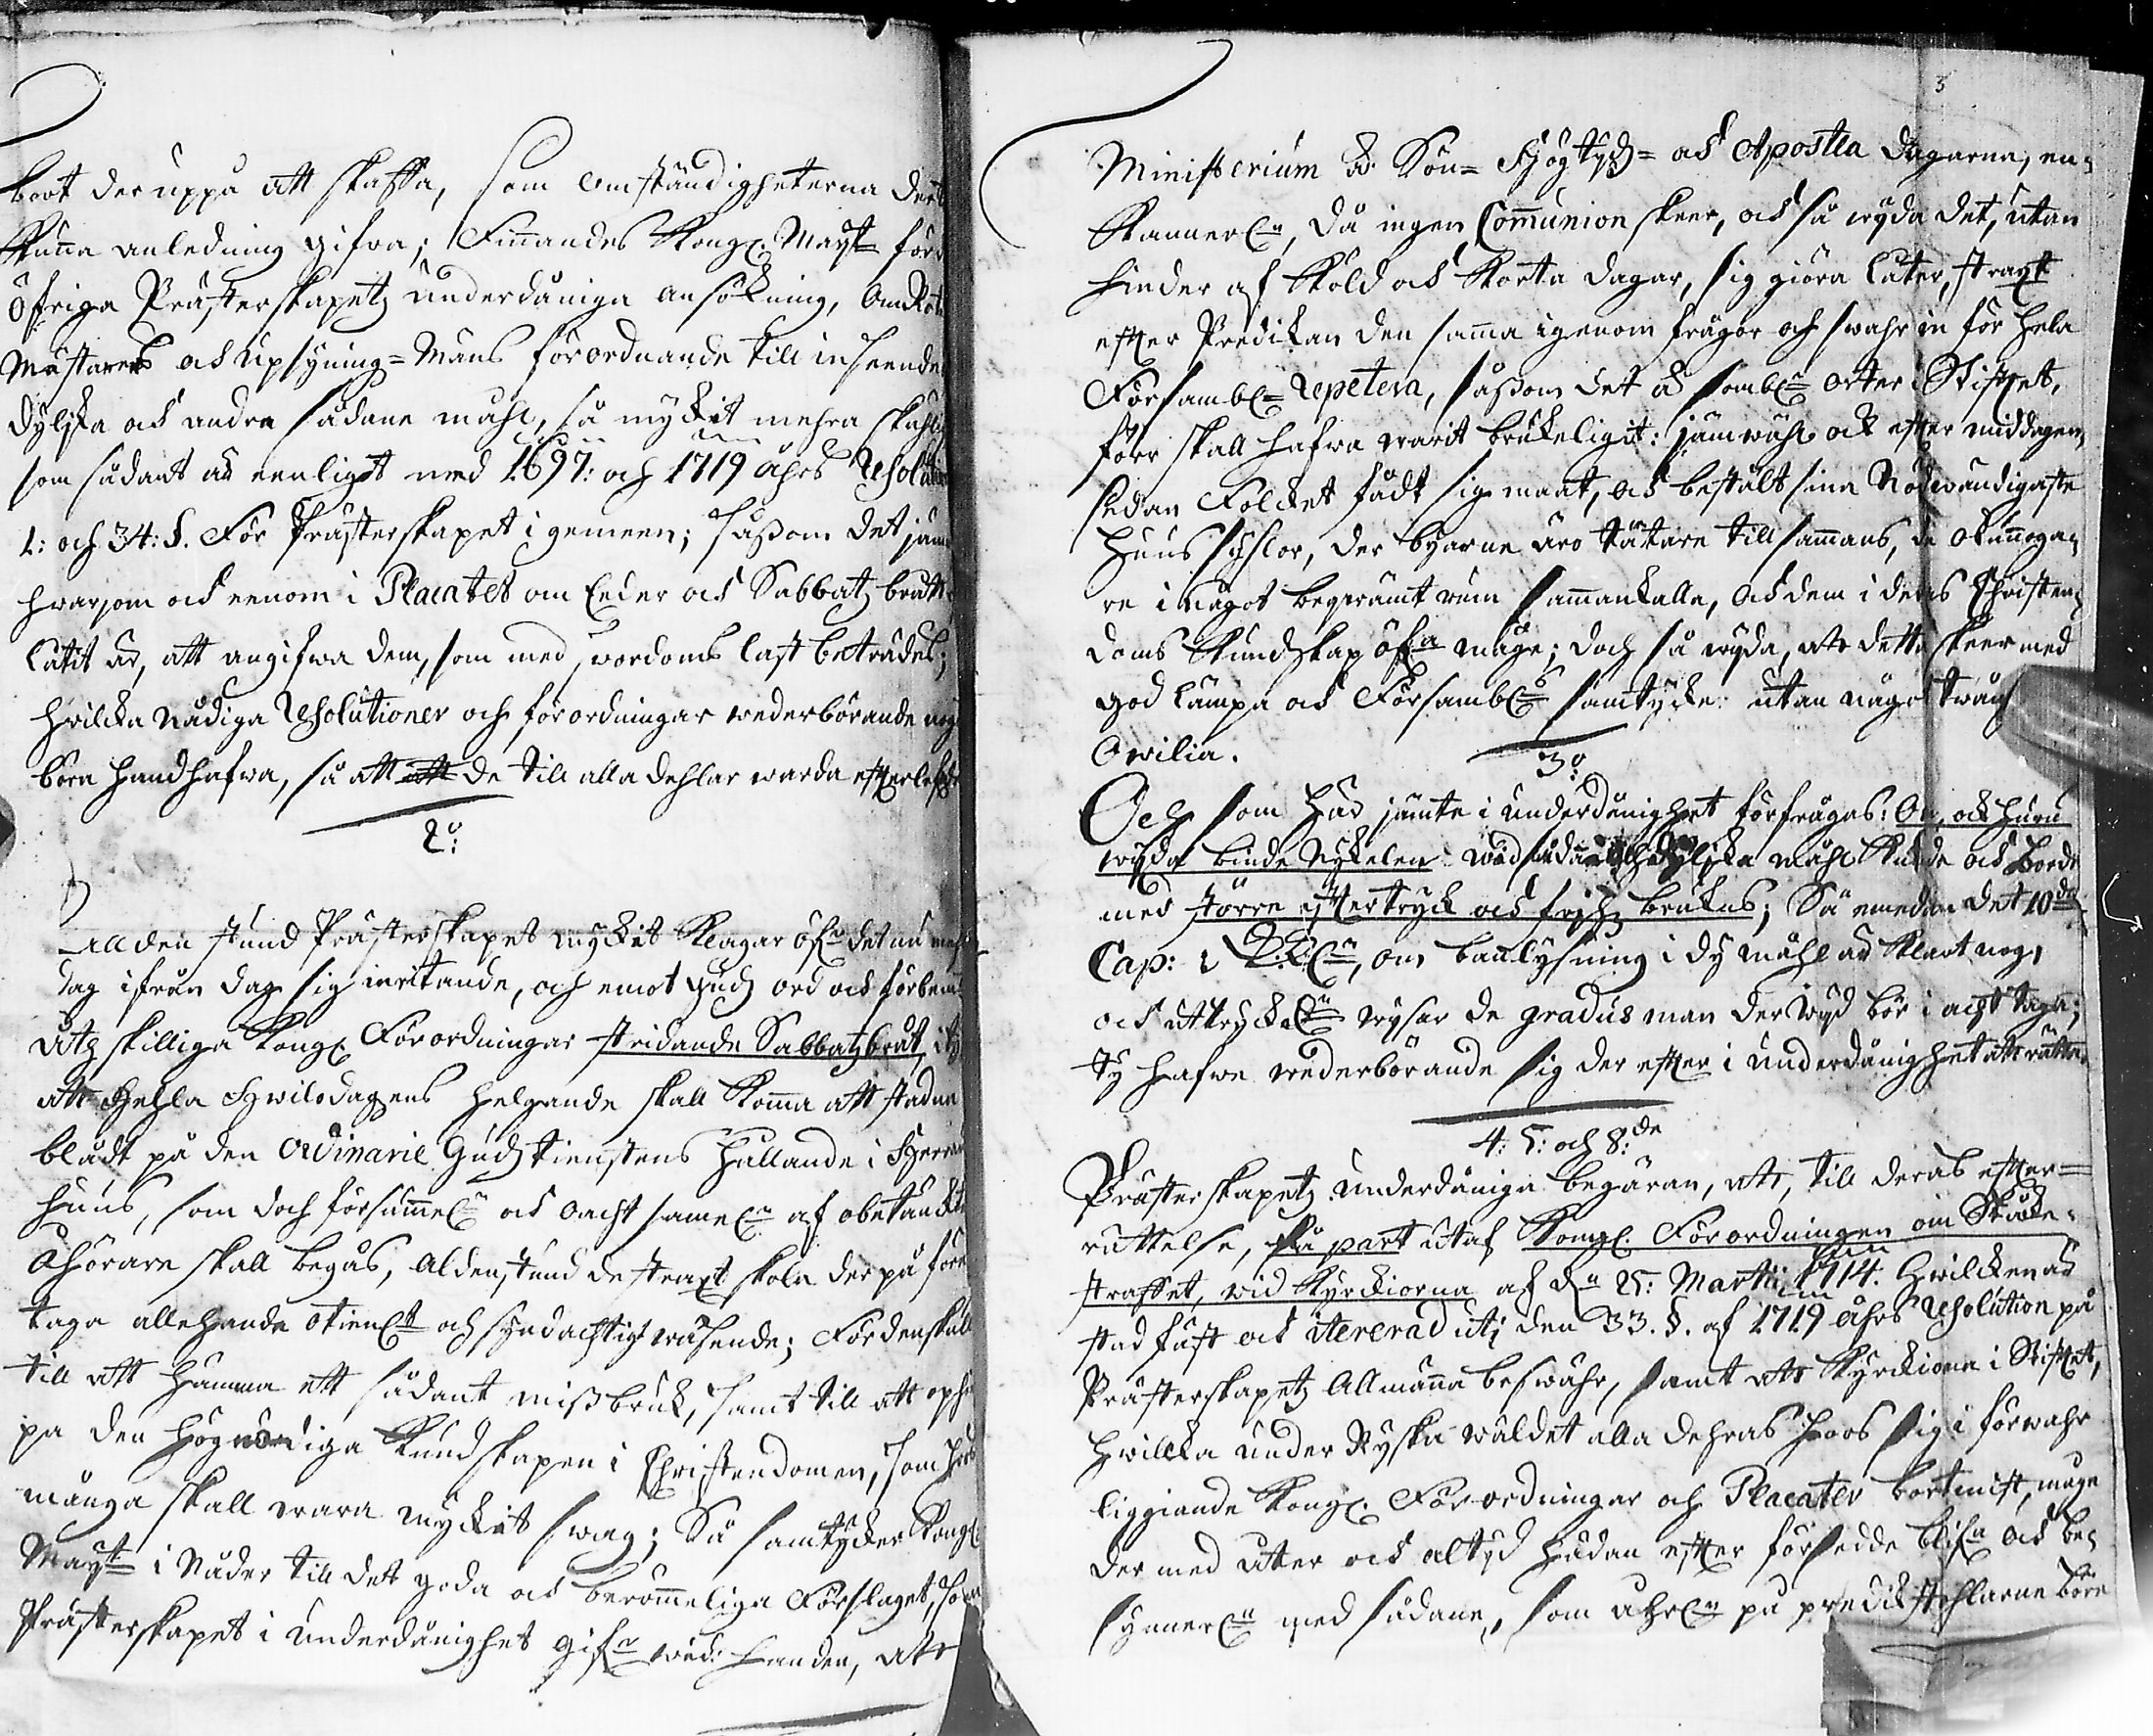 boot der uppå att skaffa, som omständigheterna der
kunna anledning gifwa; Finnandes Kongl. Mayst för
öfriga Prästerskapetz underdåniga ansökning, om Rote
Mästares och Upsynings=Mäns förordnande till inseende
dylika och andra sådane måhl, så myckit mehra skiählig
som sådant är eenligit med 1697: och 1719 åhrs Resolution
1: och 34: §. För Prästerskapet i gemeen; såssom det jäm
hwarjom och eenom i Placatet om Eeder och Sabbatz brått
låtit är, att angifwa dem, som med swordoms last beträdes;
hwilcka nådiga Resolutioner och förordningar wederbörande nog
böra handhafwa, så att de till alla dehlar warda efterlefde
2o:
All den stund Prästerskapet myckit klagar öfr det nu mehr
dag ifrån dag sig inritande, och emot Gudz ord och förbem:
åtskilliga Kongl. Förordningar stridande Sabbatzbrut,
att hehla Hwilodagens helgande skall komma att stadna
blådt på den ordinarie Gudztienstens hållande i Herrans
huus, som doch försummel:n och oachtsamel:n af obetänckte
åhörare skall begås, aldenstund de straxt skola der på före
taga allehanda otienl:t och syndachtigt wäsende; Fördenskull
till att hämma ett sådant missbruk, samt till att ophiel
pa den högnödiga kundskapen i Christendomen, som hos
många skall wara myckit swag; Så samtycker Kongl:
Mayst i Nåder till det goda och berömmeliga Förslaget, som
Prästerskapet i underdånighet gifr wid handen, att
3
Ministerium å Sön= Högtydz= och Apostla dagarna, en=
kannerl:n, då ingen Communion skeer, och så wyda det, utan
hinder af kiöld och korta dagar, sig giöra låter, straxt
efter Predikan den samma igenom frågor och swahr in för hela
Försambl:n repetera, såssom det å sombl:a orter i Stiftet,
förr skall hafwa warit brukeligit: jämwähl ock efter middagen,
sedan Folcket fådt sig maat, och bestält sina Nödwändigaste
Huus syslor, der byarne äro tätare till sammans, de okunnoga=
re i något beqwämt rum sammankalla, och dem i deras Christen=
doms kundskap öfa måge; doch så wyda, att detta skeer med
god lämpa och Försambl:s samtycke: utan något twång
owilia.
3o:
Och som här jämte i underdånighet förfrågas: Om, ock huru
wyda binde Nykelen wid sådana dylika måhl kunde och borde
med större eftertryck och frijhz brukas; Så emedan det 10de
Cap: i K.L:n, om banlysning i dy måhl är klart nog,
och uttryckel:n wysar de gradus man der wyd bör i acht taga;
ty hafwe wederbörande sig der efter i underdånighet att rätta.
4: 5: och 8:de
Prästerskapetz underdåniga begäran, att, till deras efter=
rättelse, få part utaf Kongl. Förordningen om Stocke=
straffet, wid Kyrckiorna af d:n 25: Martii 1714. hwilcken är
stadfäst och itererad uti den 33. §. af 1719 åhrs Resolution på
Prästerskapetz Allmänna beswähr, samt att Kyrckiona i Stiftet,
hwilcka under Ryska wäldet alla dehras hoos sig i förwahr
liggiande Kongl. Förordningar och Placater bortmist, måge
der med åter och altyd hädan efter försedde blifa och be=
synnerl:n med sådane, som åhrl:n på predikstohlarne böra